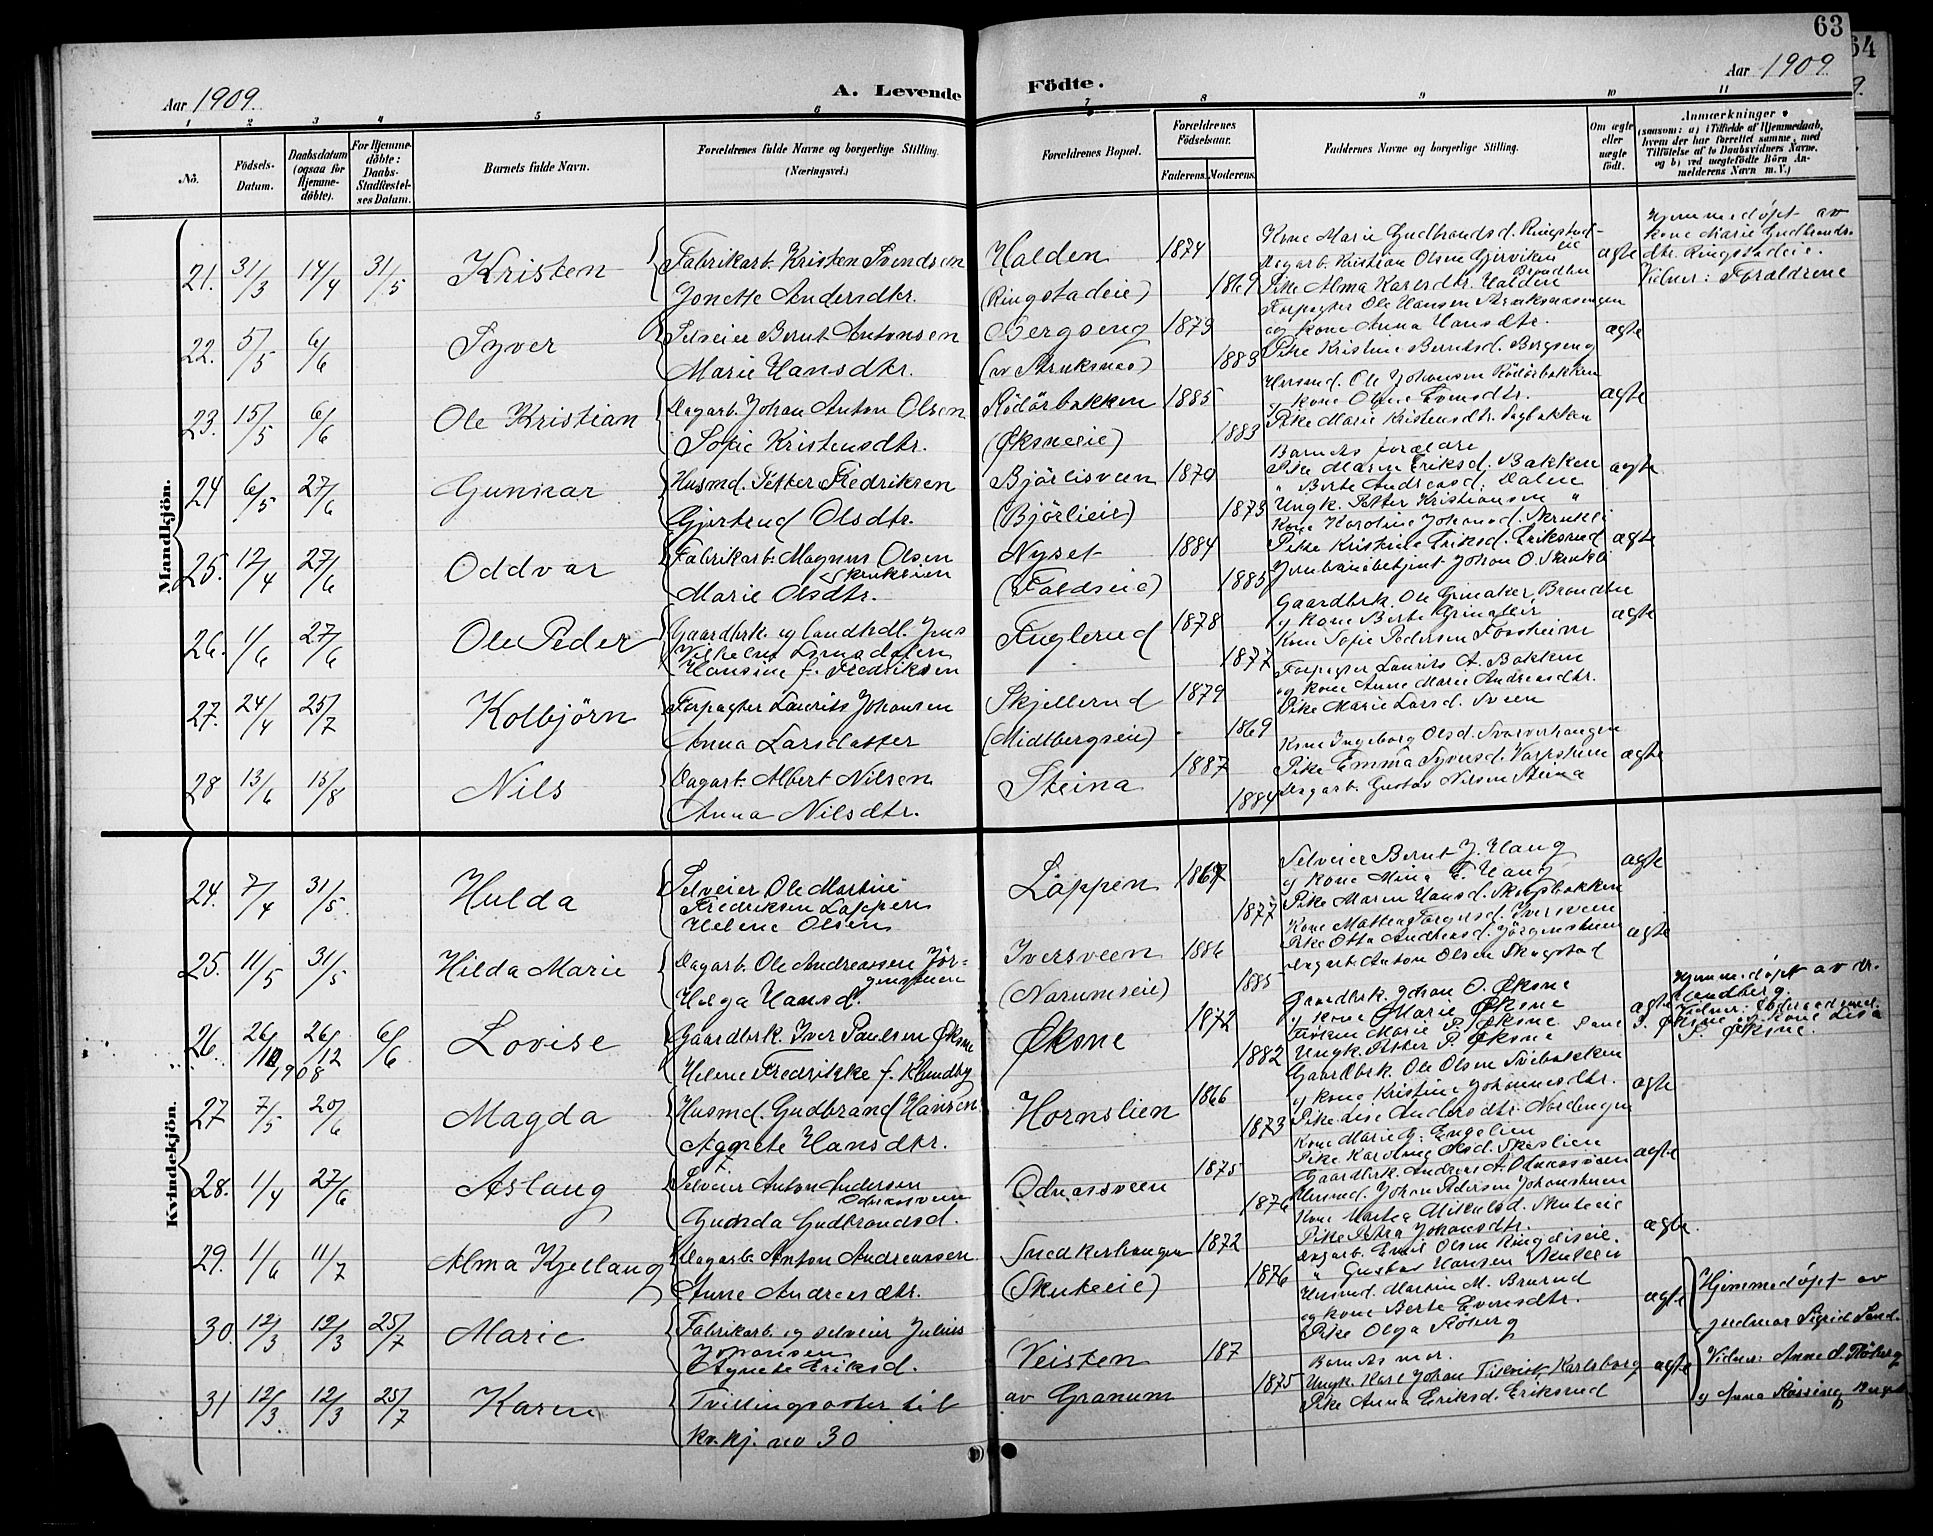 63
64
Aar 1909.
A. Levende Födte.
Aar 1909.
1 2 3 4 5 6 7 8 9 10 11
No.
Födsels-Datum.
Daabsdatum (ogsaa for Hjemme-döbte).
For Hjemme-döbte: Daabs-Stadfæstel-ses Datum.
Barnets fulde Navn.
Forældrenes fulde Navne og borgerlige Stilling.
(Næringsvei.)
Forældrenes Bopæl.
Forældrenes Födselsaar.
Faderens. Moderens.
Faddernes Navne og borgerlige Stilling.
Om ægte eller uægte födt.
Anmærkninger
(saasom: a) i Tilfælde af Hjemmedaab, hvem der har forrettet samme, med Tilföielse af to Daabsvidners Navne, og b) ved uægtefödte Börn An-melderens Navn m. V.)
Mandkjön.
21. 31/3 14/4 31/5 Kristen
Fabrikarb. Kristen Svendsen
Jonette Andersdtr.
Halden
(Ringstadeie)
1874 1869
Kone Marie Gudbrandsd. Ringstad-eie
Dagarb. Kristian Olsen Gjerviken
Pike Alma Karlsdtr. Halden
ægte
Hjemmedøpt av
kone Marie Gudbrands-
dtr. Ringstadeie.
Vidner: Forældrene
22. 5/5 6/6 Syver
Selveier Bernt Antonsen
Marie Hansdtr.
Bergseng
(av Struksnæs)
1879 1883
Forpagter Ole Hansen
og kone Anna Hansdtr.
Pike Kristine Berntsd. Bergseng
ægte
23. 15/5 6/6 Ole Kristian
Dagarb. Johan Anton Olsen
Sofie Kristensdtr.
Rödörbakken
(Øksneeie)
1885 1883
Husmd. Ole Johansen Rödörbakken
og kone Oline Evensdtr.
Pike Marie Kristensdtr. Sagbakken
ægte
24 6/5 27/6 Gunnar
Husmd. Petter Fredriksen
Gjertrud Olsdtr.
Björlisveen
(Björlieie)
1870 1873
Barnets forældre
Pike Maren Eriksd. Bakken
" Berte Andreasd. Dalen
Ungk. Petter Kristiansen "
ægte
25. 12/4 27/6 Oddvar
Fabrikarb. Magnus Olsen
Marie Olsdtr.
Nyset
(Faldseie)
1884 1885
Kone Karoline Johansd. Skrukli
Pike Kristine Eriksd. Eriksrud
Jernbanebetjent Johan O. Skrukli
ægte
26. 1/6 27/6 Ole Peder
Gaardbrk. og landhdl. Jens
Vilhelm
Hansine f. Fredriksen
Fuglerud
1878 1877
Gaardbrk. Ole Grinaker Brandbu
og kone Berte Grinaker
Kone Sofie Pedersen Fossheim
ægte
27. 24/4 25/7 Kolbjörn
Forpagter Laurits Johansen
Anna Larsdatter
Skjellerud
(Midtbergseie)
1879 1869
Forpagter Laurits A. Bakken
og kone Anne Marie Andreasdtr.
Pike Marie Larsd. Sveen
28 13/6 15/8 Nils
Dagarb. Albert Nilsen
Anna Nilsdtr.
Steina
1887 1884
Kone Ingeborg Olsd. Svarverhaugen
Pike Emma Syversd. Varpstuen
Dagarb. Gustav Nilsen Steina
ægte
Kvindekjön.
24. 7/4 31/5 Hulda
Selveier Ole Martin
Fredriksen Lappen
Helene Olsen
Lappen
1867 1877
Selveier Bernt J. Haug
og kone Mina E. Haug
Pike Maren Hansd. Skogsbakken
ægte
25. 11/5 31/5 Hilda Marie
Dagarb. Ole Andreassen Jör-
genstuen
Helga Hansd.
Iversveen
(Narumseie)
1886 1885
Kone Mathea Torgersd. Iversveen
Pike Otta Andreasd. Jörgenstuen
Dagarb. Anton Olsen Skogstad
ægte
26. 26/10 1908 26/12 6/6 Lovise
Gaardbrk. Iver Paulsen Øksne
Helene Fredrikke f. Klundby
Øksne
1872 1882
Gaardbrk. Johan O. Øksne
og kone Marie Øksne
Frøken Marie P. Øksne
Ungk. Petter P. Øksne
ægte
Hjemmedøpt av dr.
27 7/5 20/6 Magda
Husmd. Gudbrand Hansen
Agnete Hansdtr.
Hornslien
1866 1873
Gaardbrk. Ole Olsen Sviebakken
og kone Kristine Johannesdtr.
Pike Lise Andersdtr. Nordengen
ægte
28. 1/4 27/6 Aslaug
Selveier Anton Andersen
Odnessveen
Gunda Gudbrandsd.
Odnessveen
1875 1876
Kone Marie G. Engelien
Pike Karoline Olsd. Skaslien
Gaardbrk. Andreas A. Odnessveen
ægte
29. 1/6 11/7 Alma Kjellaug
Dagarb. Anton Andreassen
Anne Andreasdtr.
Snedkerhaugen
(Skuteeie)
1872 1876
Husmd. Johan Pedersen Johanstuen
Pike Petra Johansdtr.
Dagarb. Emil Olsen
" Gustav Hansen
ægte.
30. 12/3 12/3 25/7 Marie
Fabrikarb. og selveier Julius
Johansen
Agnete Eriksd.
Veisten
av Granum
187 1875
Husmd. Martin M. Brurud
og kone Berte Evensdtr.
Pike Olga Röberg
ægte
Hjemmedøpt av
jordmor Sigrid Sand.
Vidner: Anne S. Röberg
31 12/3 12/3 25/7 Karen
Tvillingsøster til
kv.kj. no 30
Barnets mor.
Ungk. Karl Johan Karlsborg
Pike Anna Eriksd. Eriksrud
ægte